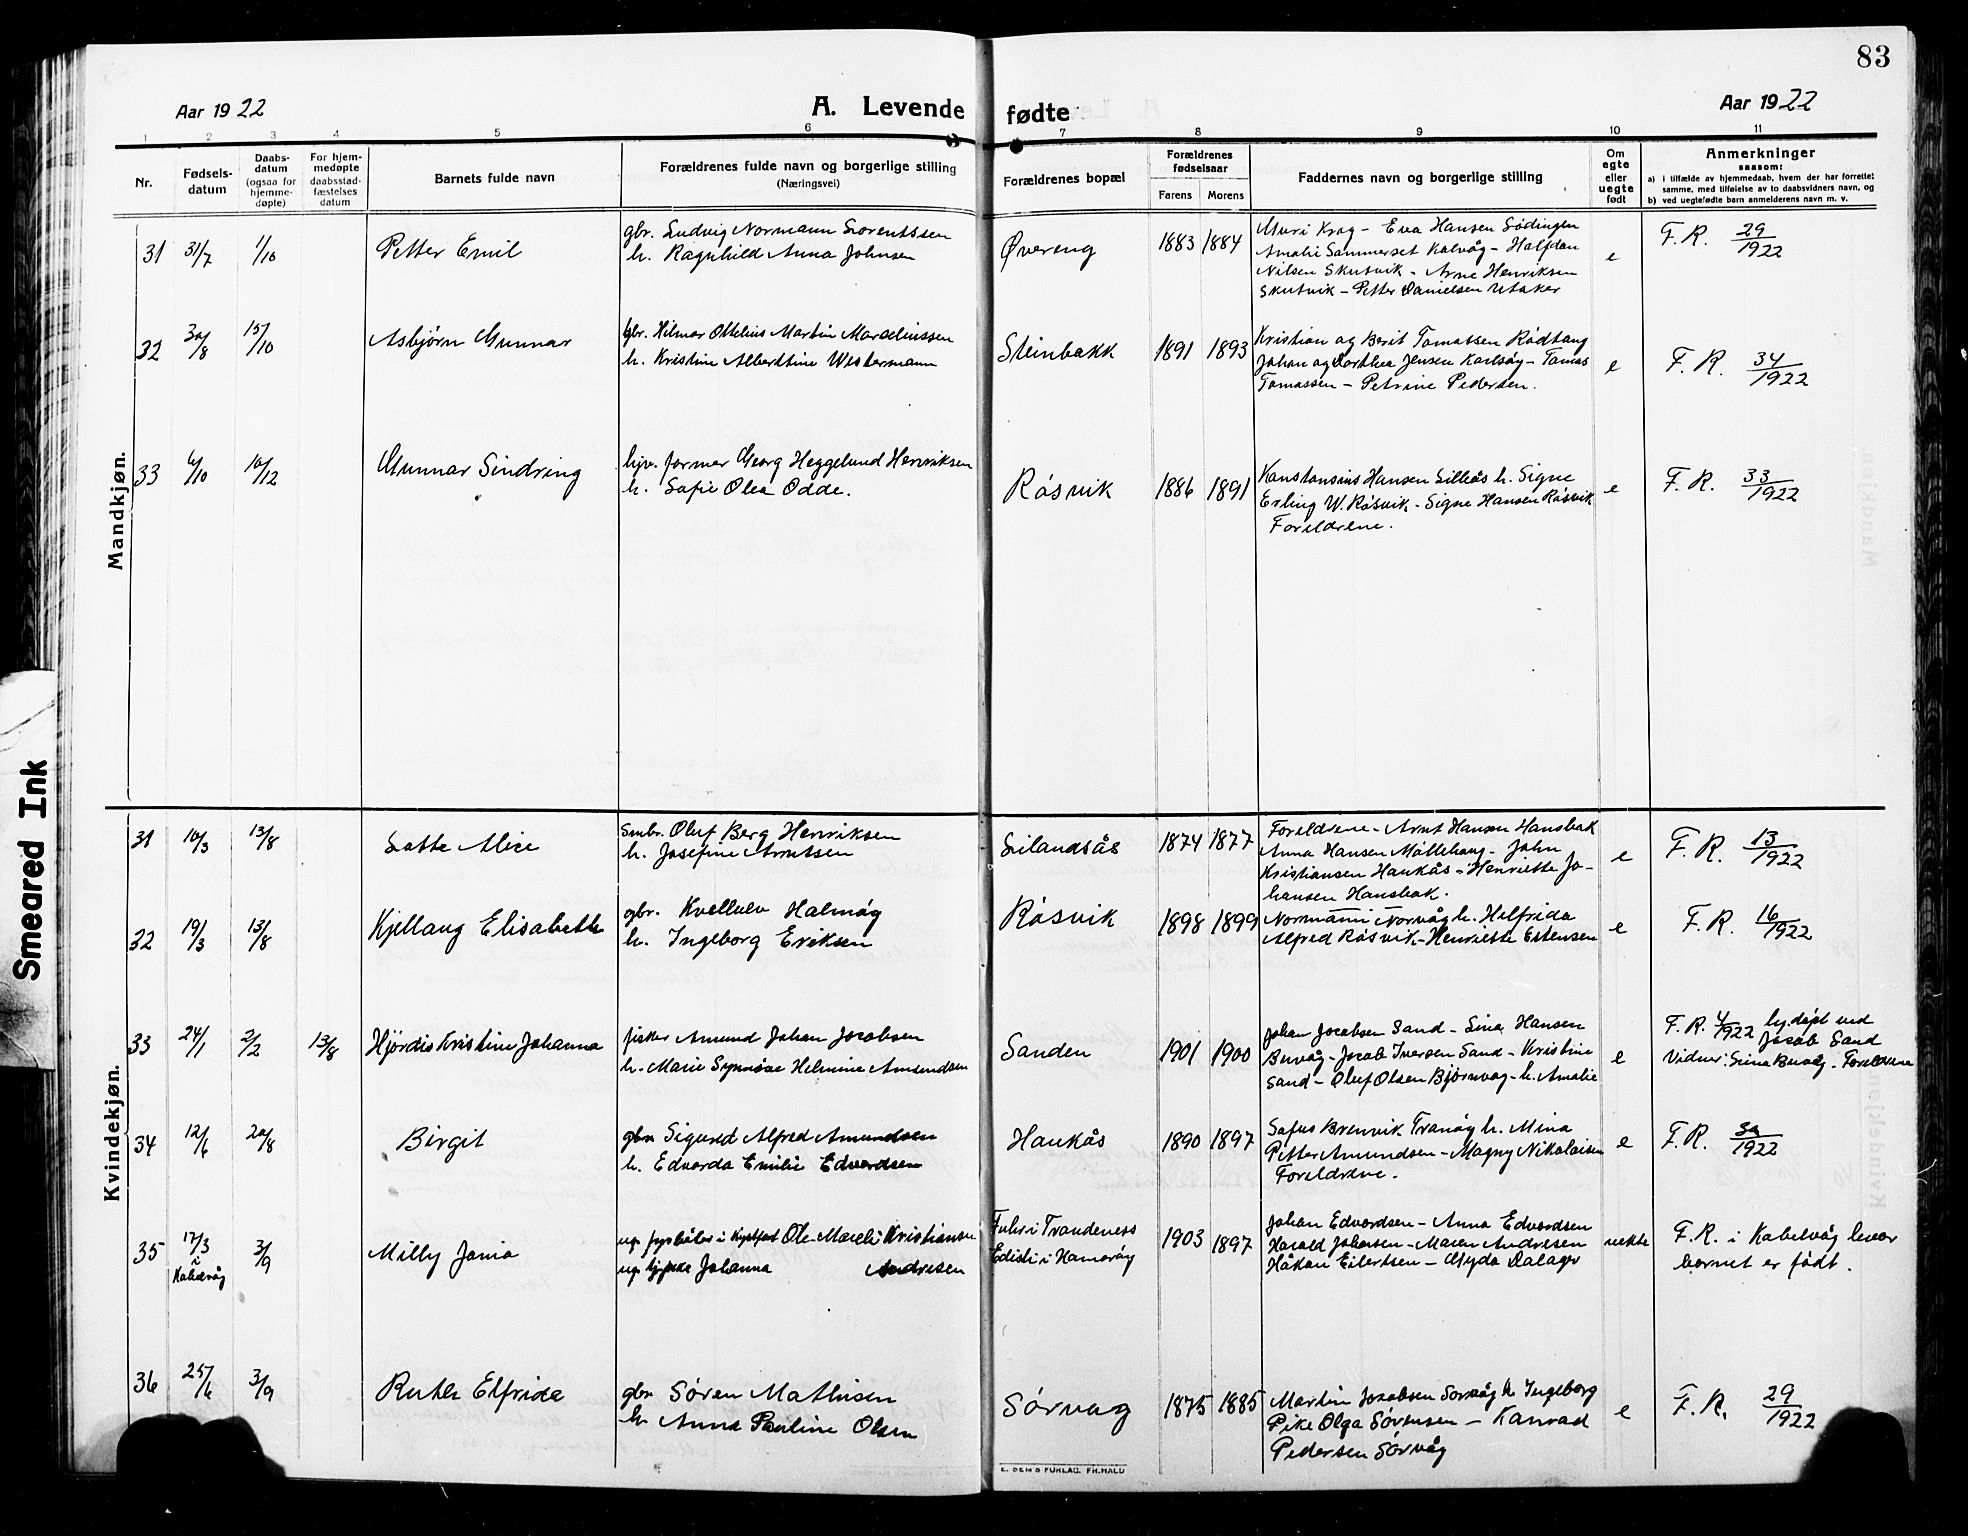 83
Aar 1922
A. Levende fødte
Aar 1922
1 2 3 4 5 6 7 8 9 10 11
Nr.
Fødsels-
datum
Daabs-
datum
(ogsaa for
hjemme-
døpte)
For hjem-
medøpte
daabsstad-
fæstelses
datum
Barnets fulde navn
Forældrenes fulde navn og borgerlige stilling
(Næringsvei)
Forældrenes bopæl
Forældrenes
fødselsaar
Farens Morens
Faddernes navn og borgerlige stilling
Om
egte
eller
uegte
født
Anmerkninger
saasom:
a) i tilfælde av hjemmedaab, hvem der har forrettet
samme, med tilføielse av to daabsvidners navn, og
b) ved uegtefødte barn anmelderens navn m. v.
Mandkjøn.
31 31/7 1/10 Petter Emil
gbr. Ludvig Normann Lorentssen
h. Ragnhild Anna Johnsen
Øvereng 1883 1884
Krog - Eva Hansen Lødingen
Amalie Sammerset Kalvåg - Halfdan
Nilsen Skutvik - Arne Henriksen
Skutvik - Petter Danielsen
e
F. R. 29/1922
32 30/8 15/10 Asbjørn Gunnar
gbr. Hilmar Ottelius Martin Marseliussen
h. Kristine Albertine Westermann
Steinbakk 1891 1893
Kristian og Berit Tomassen Rödtang
Johan og Dorthea Jensen Karlsöy - Tomas
Tomassen - Petrine Pedersen.
e
F. R. 34/1922
33 6/10 10/12 Gunnar Sindring
hjv. former Georg Heggelund Henriksen
h. Sofie Olea Odde.
Røsvik 1886 1891
Konstansius Hansen Lilleås h. Signe
Erling W. Røsvik - Signe Hansen Røsvik
Foreldrene.
e
F. R. 33/1922
Kvindekjøn.
31 10/3 13/8 Lotte Alice
Smbr. Oluf Berg Henriksen
h. Josefine Arntsen
Lilandsås 1874 1877
Foreldrene - Arnt Hansen Hansbak
Anna Hansen Möllehaug - John
Kristiansen Haukås - Henriette Jo-
hansen Hansbak.
e
F. R. 13/1922
32 19/3 13/8 Kjellaug Elisabeth
gbr. Kvellulv Halmöy
h. Ingeborg Eriksen
Røsvik 1898 1899
Normann Norvåg h. Helfrida
Alfred Røsvik - Henriette Estensen
e
F. R. 16/1922
33 24/1 2/2 13/8 Hjördis Kristine Johanna
fisker Amund Johan Jocobsen
h. Marie Synnöve Helmine Amundsen
Sanden 1901 1900
Johan Jocobsen Sand - Lina Hansen
Buvåg - Jocob Iversen Sand - Kristine
Sand - Oluf Olsen Björnvåg - h. Amalie
e
F. R. 4/1922 hj.döpt ved
Jacob Sand
Vidner: Lina Buvåg - Foreldrene
34 12/6 20/8 Birgit
gbr. Sigurd Alfred Amundsen
h. Edvarda Emilie Edvardsen
Haukås 1890 1897
Sofus Brenvik Tranöy h. Mina
Petter Amundsen - Magny Nikolaisen
Foreldrene.
e
F. R. 30/1922
35 17/3 i Kabelvåg 3/9 Milly Jania
Ole Mareli Kristiansen
Johanna Andresen
i Trondenes
i Hamaröy
1903 1897
Johan Edvardsen - Anna Edvardsen
Harald Johansen - Maren Andresen
Håkon Eilertsen - Gyda Dalager
uekte
F. R. i Kabelvåg hvor
barnet er födt.
36 25/6 3/9 Ruth Elfride
gbr Søren Mathisen
h. Anna Pauline Olsen
Sørvag 1875 1885
Martin Jocobsen Sorvåg h Ingeborg
Pike Olga Sørensen - Konrad
Pedersen Sørvåg
e
F. R. 29/1922
Smeared Ink
FORLAG. FR. HALD